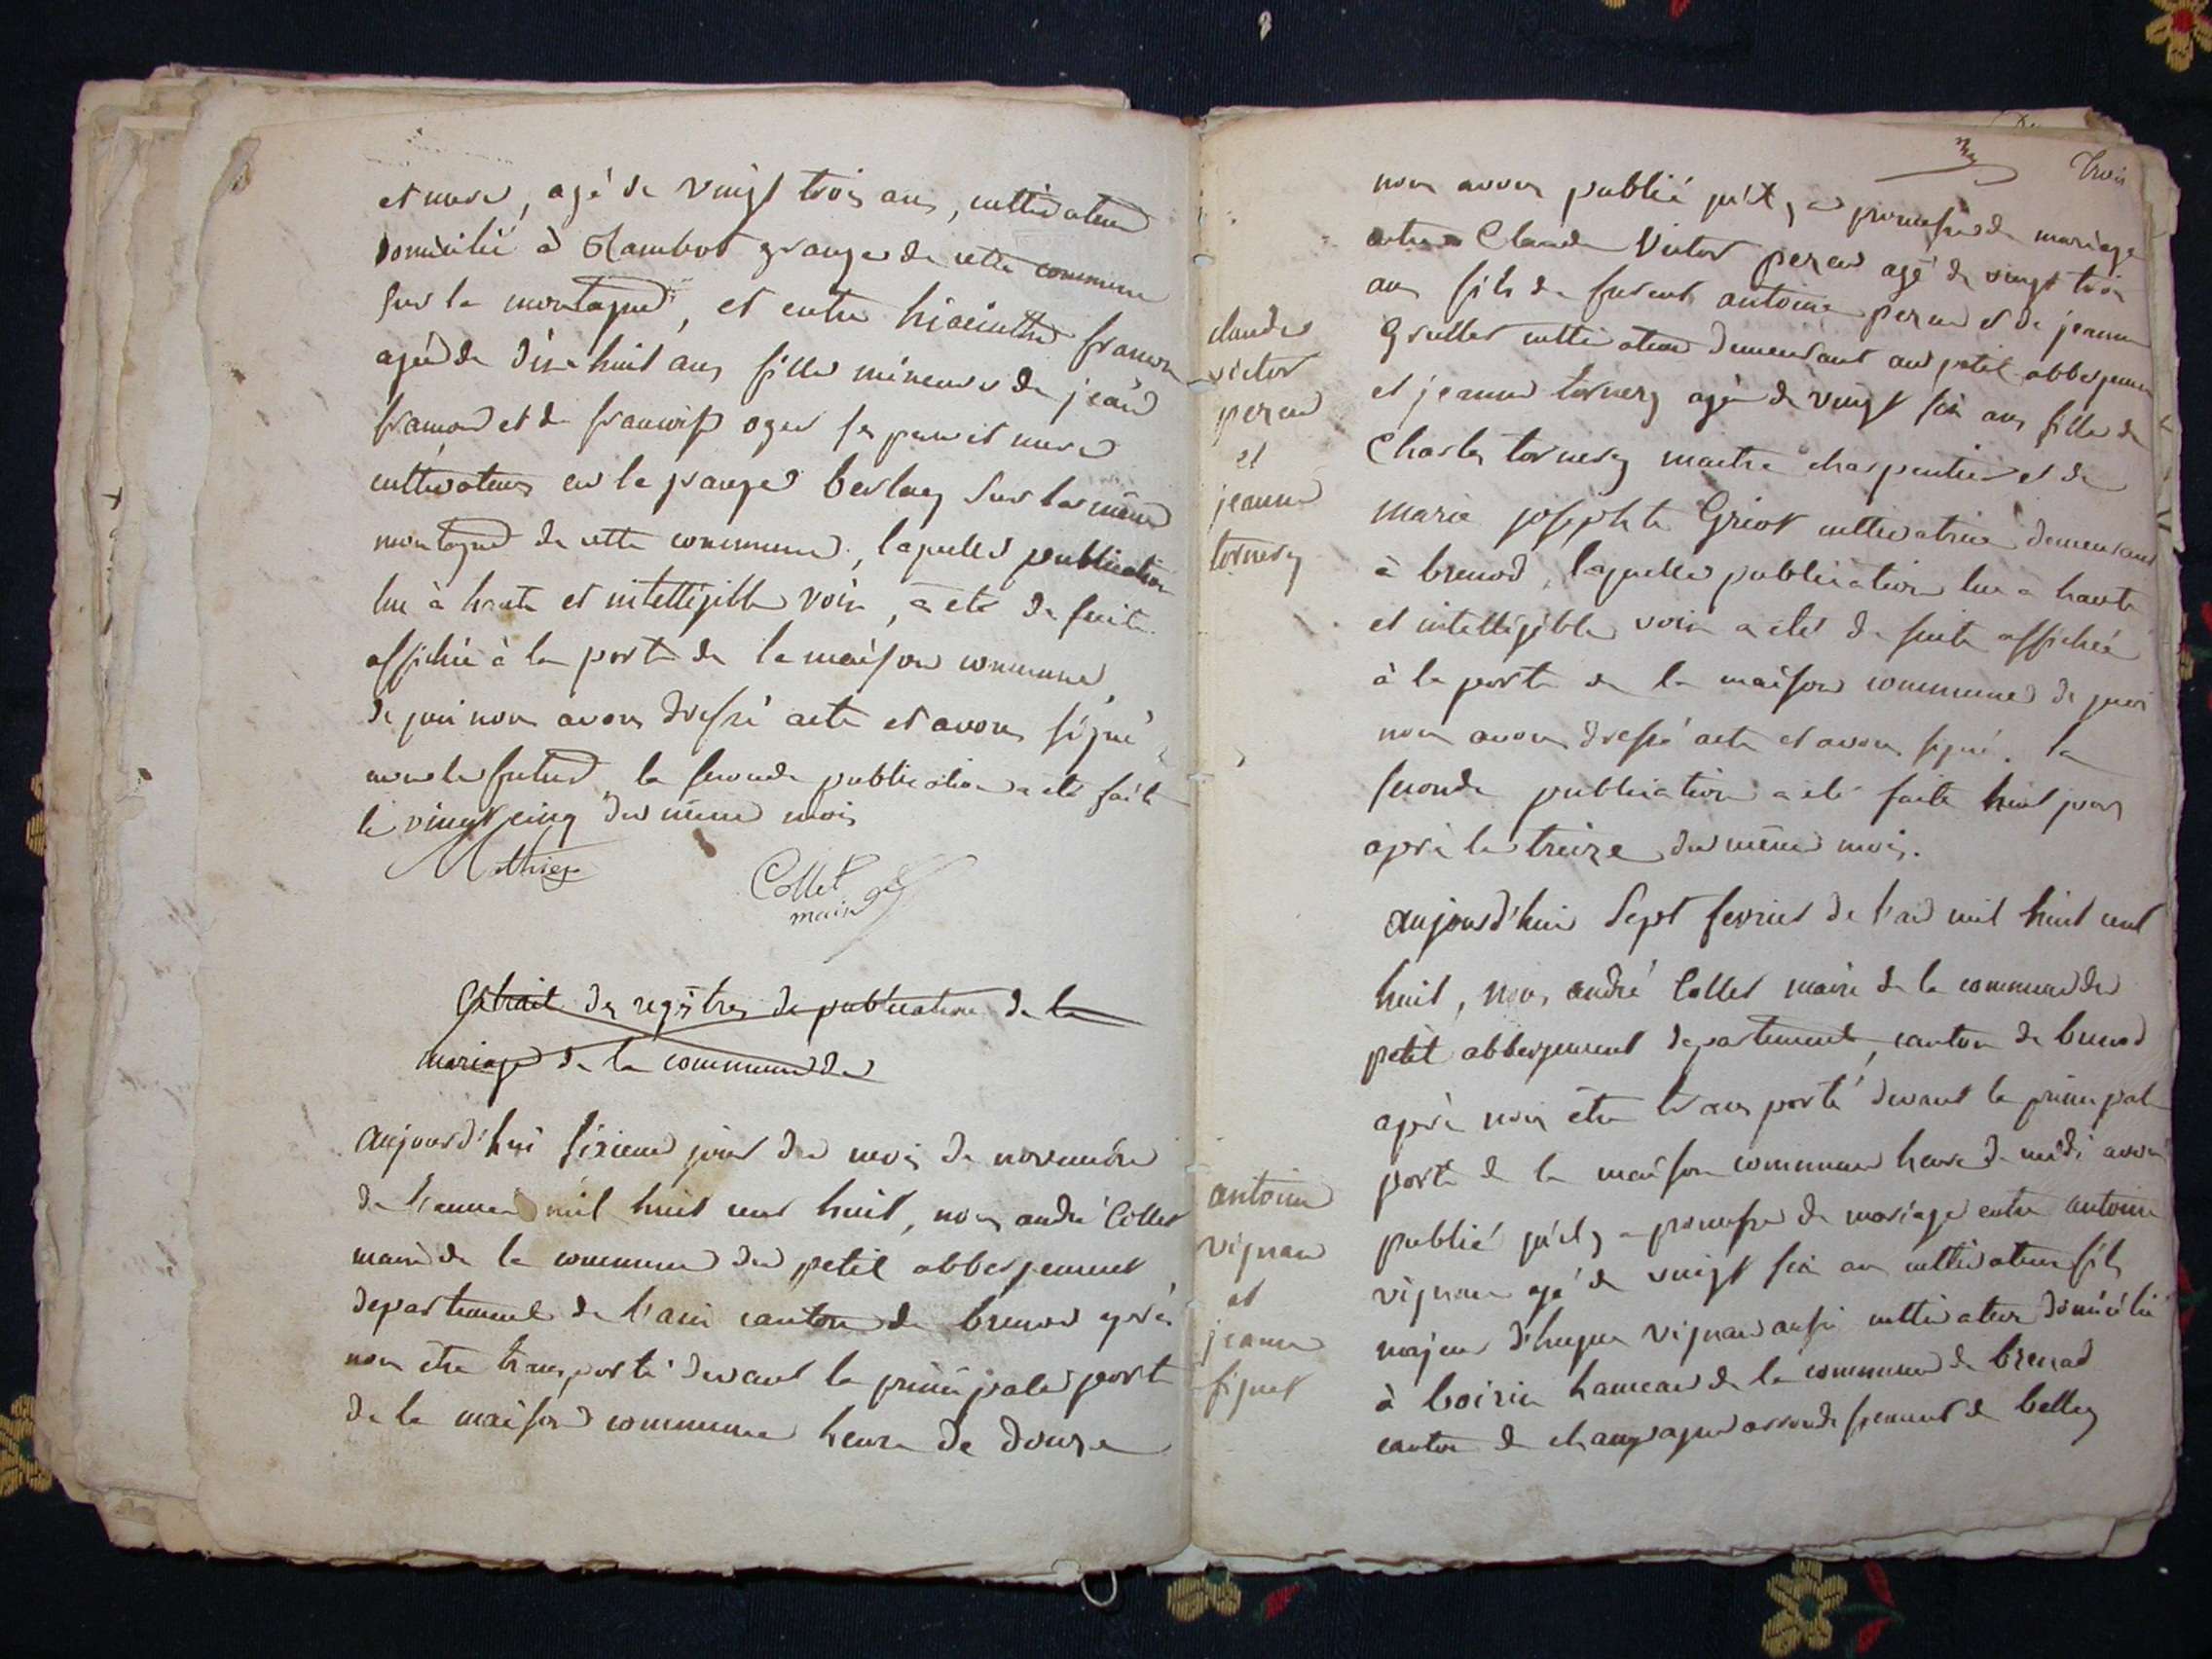 et mere, agé de vingt trois ans, cultivateur
domicilié à Rambod grange de cette commune
sur la montagne, et entre hiacinthe framon
agée de dixe huit ans fille mineure de jean
framon et de françoise oger ses pere et mere
cultivateurs en la grange berluey sur la même
montagne de cette commune, laquelle publication
lue à haute et intelligible voix, a eté de suite
affichée à la porte de la maison commune,
de quoi nous avons dressé acte et avons signé
avec le futur la seconde publication a eté faite
le vingt cinq du même mois
Mathieu
Collet
maire
Extrait des registres de publication de la
mariage de la commune du
aujourd'hui sixieme jour du mois de novembre
de l'année mil huit cent huit, nous andré Collet
maire de la commune du petit abbergement
departement de l'ain canton de brenod après
nous être transporté devant la principale porte
de la maison commune heure de douze
trois
nous avons publié qu'il y a promesse de mariage
entre Claude Victor perrend agé de vingt trois
ans fils de furent antoine perrend et de jeanne
Grullet cultivateur demeurant au petit abbergement
et jeanne tornery agée de vingt six ans fille de
Charles tornery maitre charpentier et de
marie josephte Griot cultivatrice demeurant
à brenod, laquelle publication lue a haute
et intelligible voix a eté de suite affichée
à la porte de la maison commune de quoi
nous avons dressé acte et avons signé. la
seconde publication a eté faite huit jours
après le treize du même mois.
claude
victor
perrend
et
jeanne
tornery
aujourd'hui sept fevrier de l'an mil huit cent
huit, nous andré Collet maire de la commune du
petit abbergement departement, canton de brenod
après nous être transporté devant la principale
porte de la maison commune heure de midi avons
publié qu'il y a promesse de mariage entre antoine
vignan agé de vingt six ans cultivateur fils
majeur d'hugue vignan aussi cultivateur domicilié
à boirin hameau de la commune de brenad
canton de champagne arrondissement de belley
antoine
vignan
et
jeanne
figuet